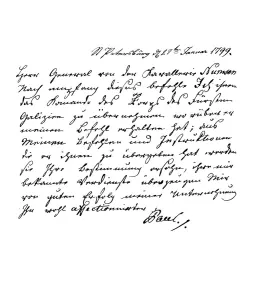 St Petersburg d. 28ten Januar 1799.
Herr General von der Kavallerie Numsen
Nach empfang dieses befehle Ich ihnen
das Komando des Korps des Fürsten
Galizien zu übernehmen worüber er
meinen Befehl erhalten hat; aus
Meinen Befehlen und Instruktionen
die er ihnen zu übergeben hat werden
sie Ihre Bestimmung ersehen, ihre mir
bekante Verdienste überzeugen Mir
von guten Erfolg meiner Unternehmung
Ihr wohl affectionirter
Paul